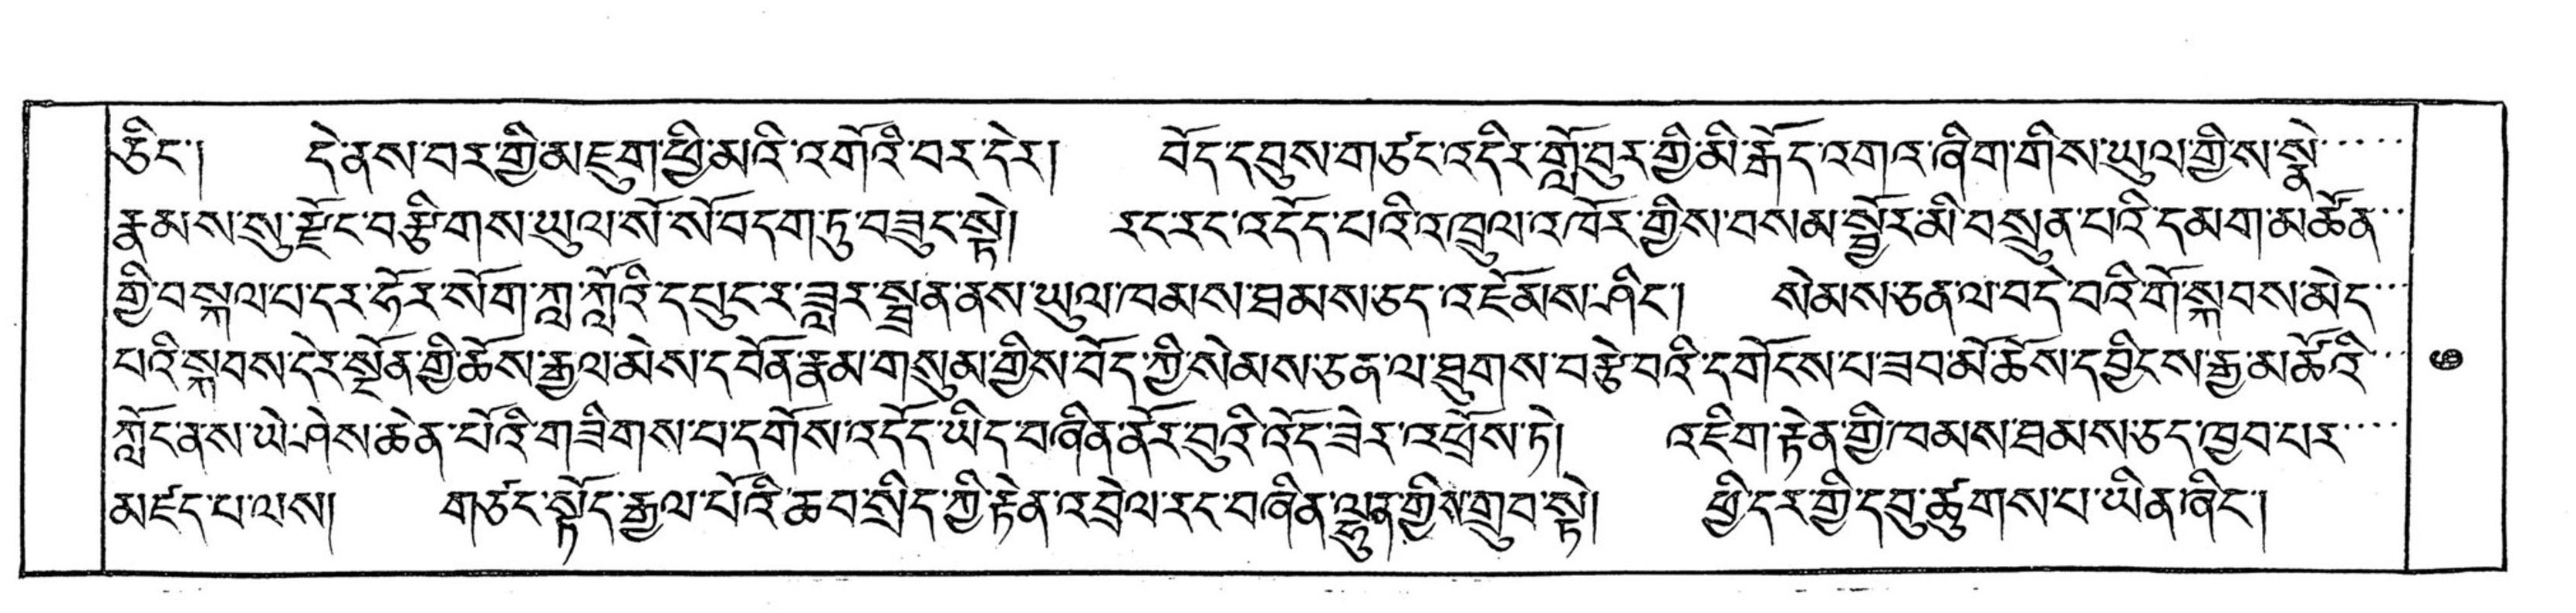 ཅིང་། དེ་ནས་བར་གྱི་མཇུག་ཕྱི་མའི་འགོའི་བར་དེར། བོད་དབུས་གཙང་འདིར་གློ་བུར་གྱི་མི་རྒོད་འགའ་ཞིག་གིས་ཡུལ་གྱིས་སྣེ་․․․․․
རྣམས་སུ་རྫོང་བརྩིགས་ཡུལ་སོ་སོ་བདག་ཏུ་བཟུང་སྟེ། རང་རང་འདོད་པའི་འཁྲུལ་འཁོར་གྱིས་བསམ་སྦྱོར་མི་བསྲུན་པའི་དམག་མཚོན་․․
གྱི་བསྐལ་པ་དར་ཧོར་སོག་ཀླ་ཀློའི་དཔུང་ར་ཟླར་སྦྲན་ནས་ཡུལ་ཁམས་ཐམས་ཅད་འཇོམས་ཤིང་། སེམས་ཅན་ལ་བདེ་བའི་གོ་སྐབས་མེད་․․․
པའི་སྐབས་དེར་སྔོན་གྱི་ཆོས་རྒྱལ་མེས་དབོན་རྣམ་གསུམ་གྱིས་བོད་ཀྱི་སེམས་ཅན་ལ་ཐུགས་བརྩེ་བའི་དགོངས་པ་ཟབ་མོ་ཆོས་དབྱིངས་རྒྱ་མཚོའི་․․
ཀློང་ནས་ཡེ་ཤེས་ཆེན་པོའི་གཟིགས་པ་དགོས་འདོད་ཡིད་བཞིན་ནོར་བུའི་འོད་ཟེར་འཕྲོས་ཏེ། འཇིག་རྟེན་གྱི་ཁམས་ཐམས་ཅད་ཁྱབ་པར་․․․․
མཛད་པ་ལས། གཙང་སྟོད་རྒྱལ་པོའི་ཆབ་སྲིད་ཀྱི་རྟེན་འབྲེལ་རང་བཞིན་ལྷུན་གྱིས་གྲུབ་སྟེ། ཕྱི་དར་གྱི་དབུ་ཚུགས་པ་ཡིན་ཞིང་།